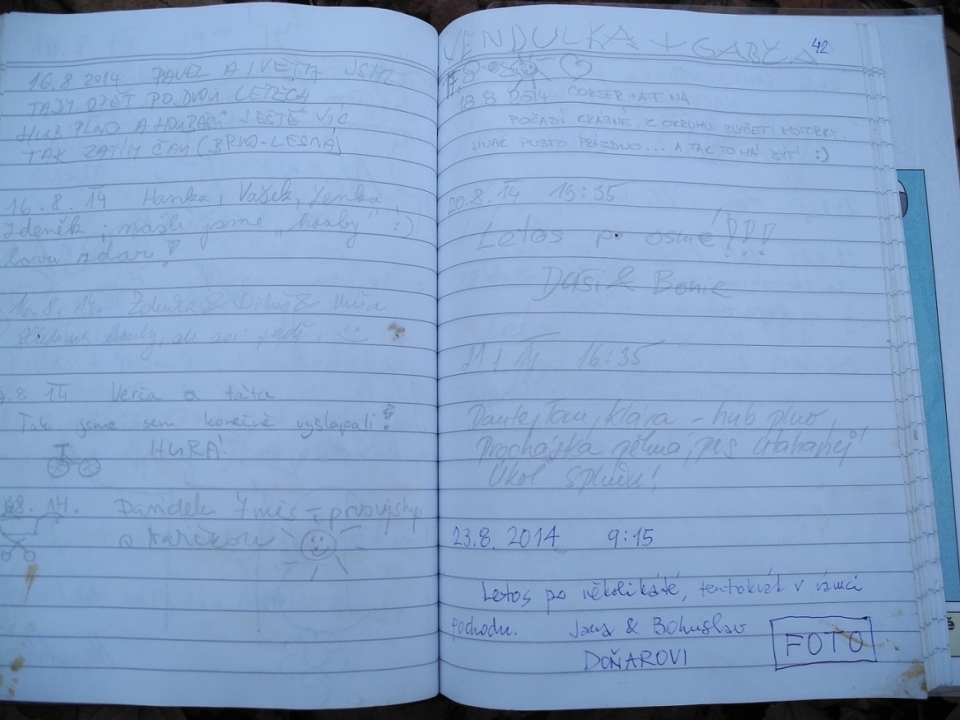 16.8 2014 PAVEL A IVETA JSME
TADY OPĚT PO DVOU LETECH
HUB PLNO A HOUBAŘŮ JEŠTĚ VÍC
TAK ZATÍM ČAU (BRNO-LESNÁ)
16.8.14 Hanka, Vašek, Lenka,
Zdeněk; našli jsme „houby" :)
lovu zdar!
16.8.14. Zdenka & &
houby, ale
.8 14 Verča a táta
Tak jsme sem konečně vyšlapali!
HURÁ!
8.14. Danídek 7 měs - prvovýstup
s kočárkem
VENDULKA + GABČA
42
18.8 2014
POČASÍ KRÁSNÉ, Z OKRUHU SLYŠET MOTORKY,
JINAK PUSTO PRÁZDNO... A TAK TO MÁ BÝT :)
20.8.14 15:35
Letos po osmé!!!
& Bonie
21.8 14 16:35
Dante, Tom, Klára - hub plno
Procházka pěkná, pes utahanej!
Úkol splněn!
23.8. 2014 9:15
Letos po několikáté, tentokrát v rámci
pochodu. Jana & Bohuslav
DOŇAROVI
FOTO